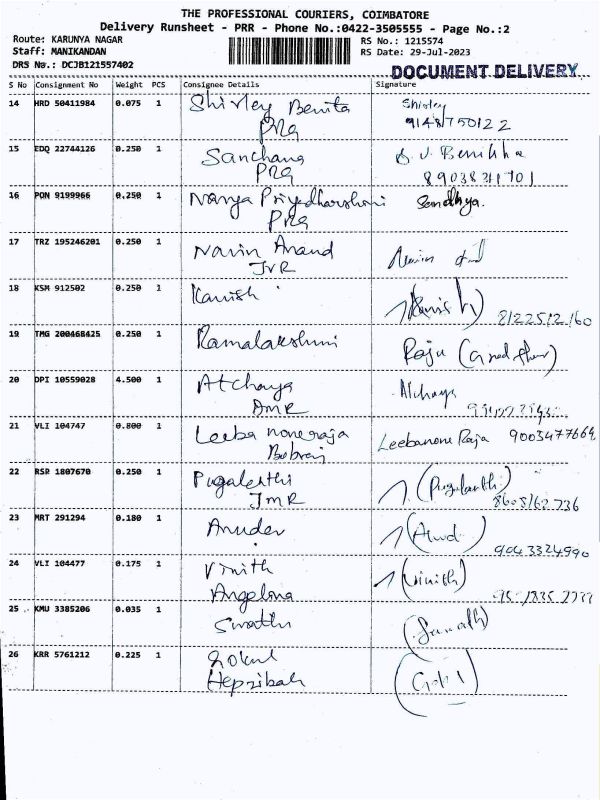 THE PROFESSIONAL COURIERS, COIMBATORE
Delivery Runsheet - PRR - Phone No.:0422-3505555 - Page No.:2
Route: KARUNYA NAGAR RS No.: 1215574
Staff: MANIKANDAN RS Date: 29-Jul-2023
DRS No.: DCJB121557402
DOCUMENT DELIVERY
S No Consignment No Weight PCS Consignee Details Signature
14 HRD 50411984 0.075 1 Shirley Benita Shirley
PRG
15 EDQ 22744126 0.250 1 Sanchana
PRG
16 PON 9199966 0.250 1 Navya Priyedharshani Sandhya.
PRG
17 TRZ 195246201 0.250 1 Navin Anand
JVR
18 KSM 912502 0.250 1 Kavish
19 TMG 200468425 0.250 1 Ramalakshmi Raju
20 DPI 10559028 4.500 1 Atchaya Atchaya
DMR
21 VLI 104747 0.800 1 Leeba noneraja Leebanone Raja 9003477664
22 RSR 1807670 0.250 1 Pugalenthi (Pugalenthi)
JMR
23 MRT 291294 0.180 1
9043324990
24 VLI 104477 0.175 1 Vinith (Vinith)
Angelona
25 KMU 3385206 0.035 1 Swathi
26 KRR 5761212 0.225 1 Gokul
Hepzibah